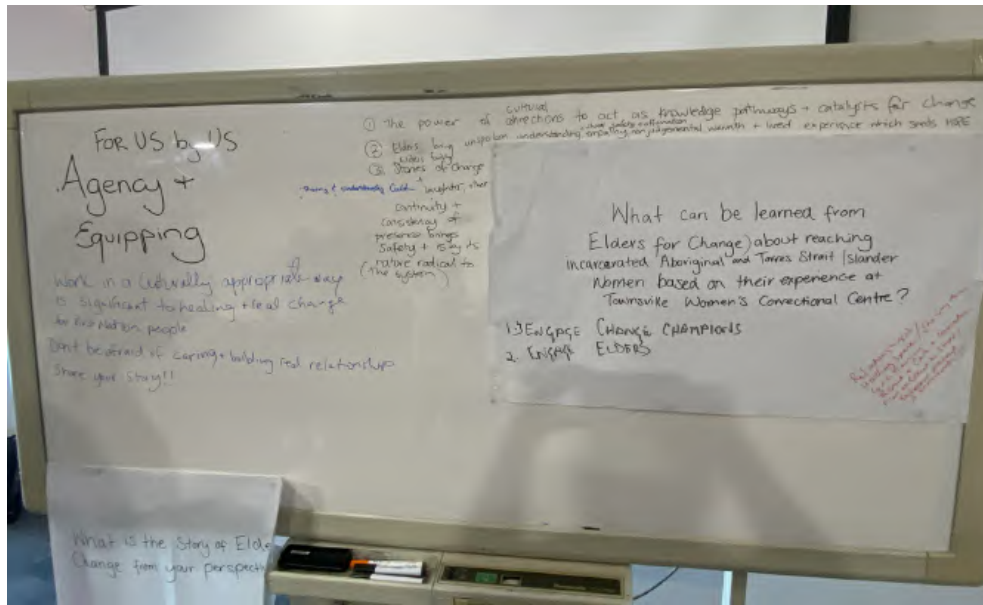 FOR US by US
Agency +
Equipping
Work in a culturally appropriate way
is significant to healing + real change
for First Nation people
Don't be afraid of caring + building real relationships
Share your story!!
cultural
① The power of connections to act as knowledge pathways + catalysts for change
② Elders bring unspoken understanding, empathy, non judgemental warmth + lived experience which seeds HOPE
③ Stories of Change
laughter,
continuity +
consistency of
presence brings
Safety + is by its
nature radical to
(the system)
What can be learned from
Elders for Change) about reaching
incarcerated Aboriginal and Torres Strait Islander
Women based on their experience at
Townsville Women's Correctional Centre?
1. ENGAGE CHANGE CHAMPIONS
2. ENGAGE ELDERS
What is the Story of Elde
Change from your perspecti